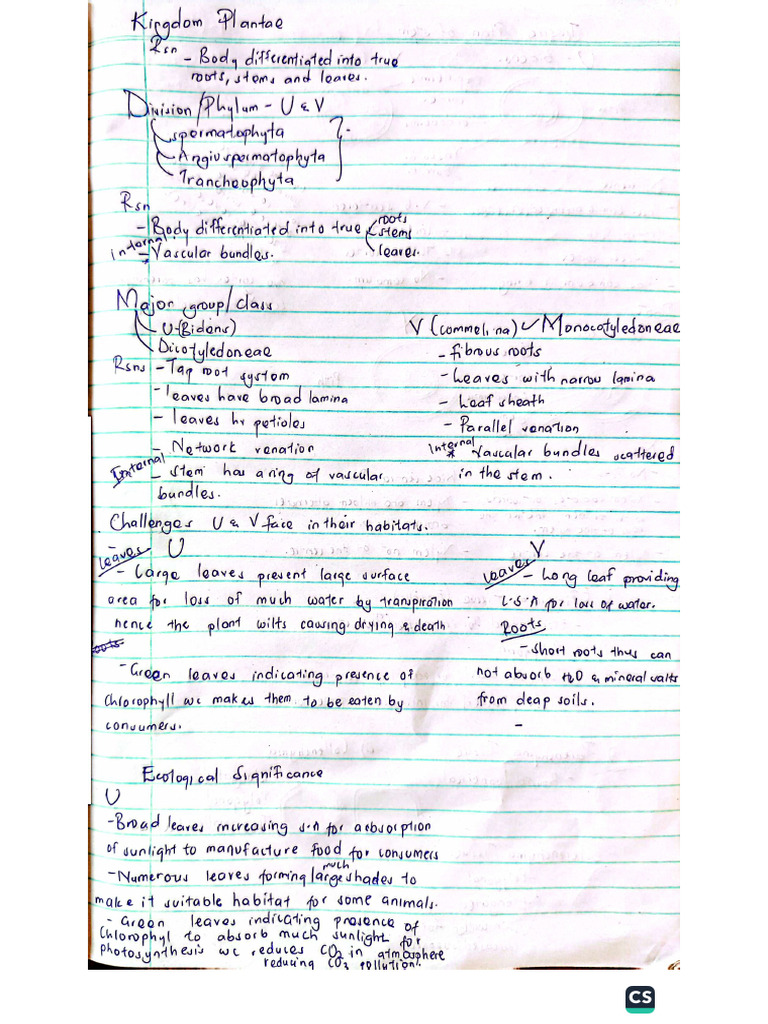 Kingdom Plantae
Rsn
- Body differentiated into true
roots, stems and leaves.
Division/Phylum - U & V
spermatophyta
Angiospermatophyta
Trancheophyta
Rsn
- Body differentiated into true
roots
stems
leaves.
internal
- Vascular bundles.
Major group/class
U-(Bidens)
Dicotyledoneae
Rsns - Tap root system
- leaves have broad lamina
- leaves hv petioles
- Network venation
Internal
- stem has a ring of vascular
bundles.
V (commelina) Monocotyledoneae
- fibrous roots
- Leaves with narrow lamina
- Leaf sheath
- Parallel venation
Internal
* Vascular bundles scattered
in the stem.
Challenges U & V face in their habitats.
U
Leaves
- Large leaves present large surface
area for loss of much water by transpiration
hence the plant wilts causing drying & death
roots
- Green leaves indicating presence of
Chlorophyll wc makes them to be eaten by
consumers.
V
Leaves
- Long leaf providing
L.S.A for loss of water.
Roots
- short roots thus can
not absorb H2O & mineral salts
from deap soils.
-
Ecological Significance
U
- Broad leaves increasing s.A for absorption
of sunlight to manufacture food for consumers
- Numerous leaves forming large much shades to
make it suitable habitat for some animals.
- Green leaves indicating presence of
Chlorophyl to absorb much sunlight for
photosynthesis wc reduces CO2 in atmosphere
reducing CO2 pollution.
CS